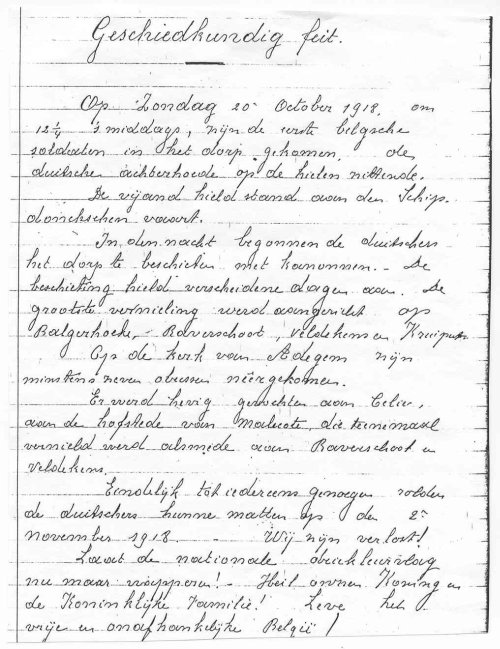 Geschiedkundig feit.
Op Zondag 20 October 1918, om
12 1/4 's middags, zijn de eerste belgsche
soldaten in het dorp gekomen, de
duitsche achterhoede op de hielen zittende.
De vijand hield stand aan den Schip-
donckschen vaart.
In den nacht begonnen de duitschers
het dorp te beschieten met kanonnen. - De
beschieting hield verscheidene dagen aan. De
grootste vernieling werd aangericht op
Balgerhoeke, - Raverschoot, Veldekens en
Op de kerk van Adegem zijn
minstens zeven obussen neêrgekomen.
Er werd hevig gevochten aan Celie,
aan de hofstede van die teenemaal
vernield werd alsmede aan Raverschoot en
Veldekens.
Eindelijk tot iedereens genoegen rolden
de duitschers hunne matten op den 2n
November 1918. - Wij zijn verlost!
Laat de nationale driekleurvlag
nu maar wapperen! - Heil onzen Koning en
de Koninklijke Familie! Leve het
vrije en onafhankelijke België!